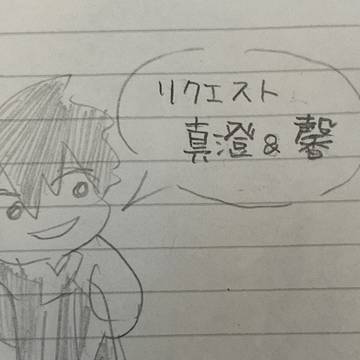 リクエスト
真澄&馨